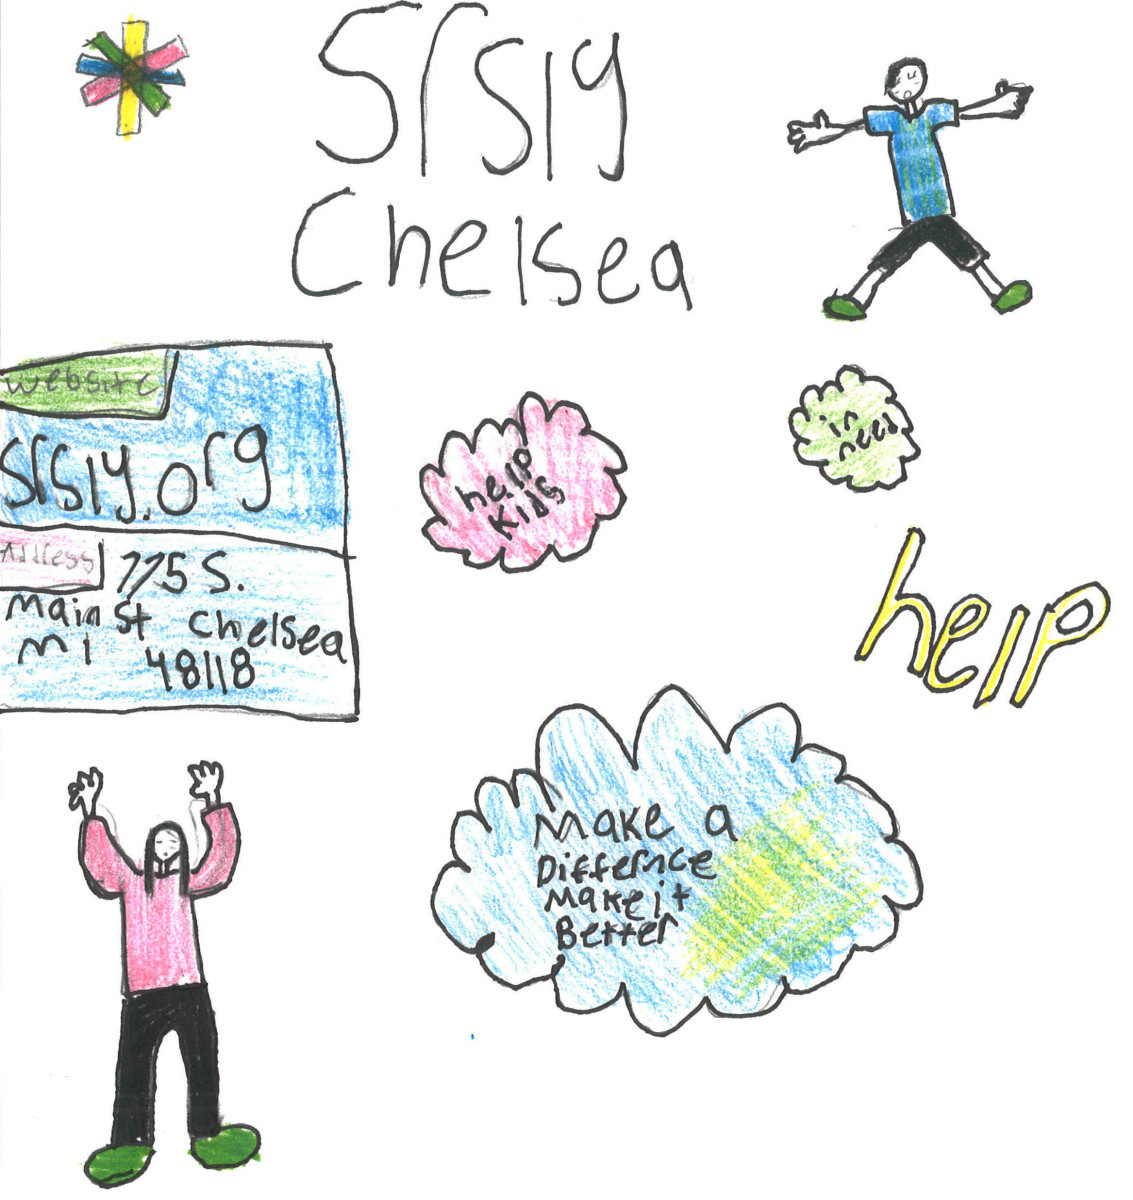 SrSly
Chelsea
website
SrSly.org
Address
775 S.
Main St Chelsea
MI 48118
help
Kids
in
need
help
Make a
Differnce
Make it
Better